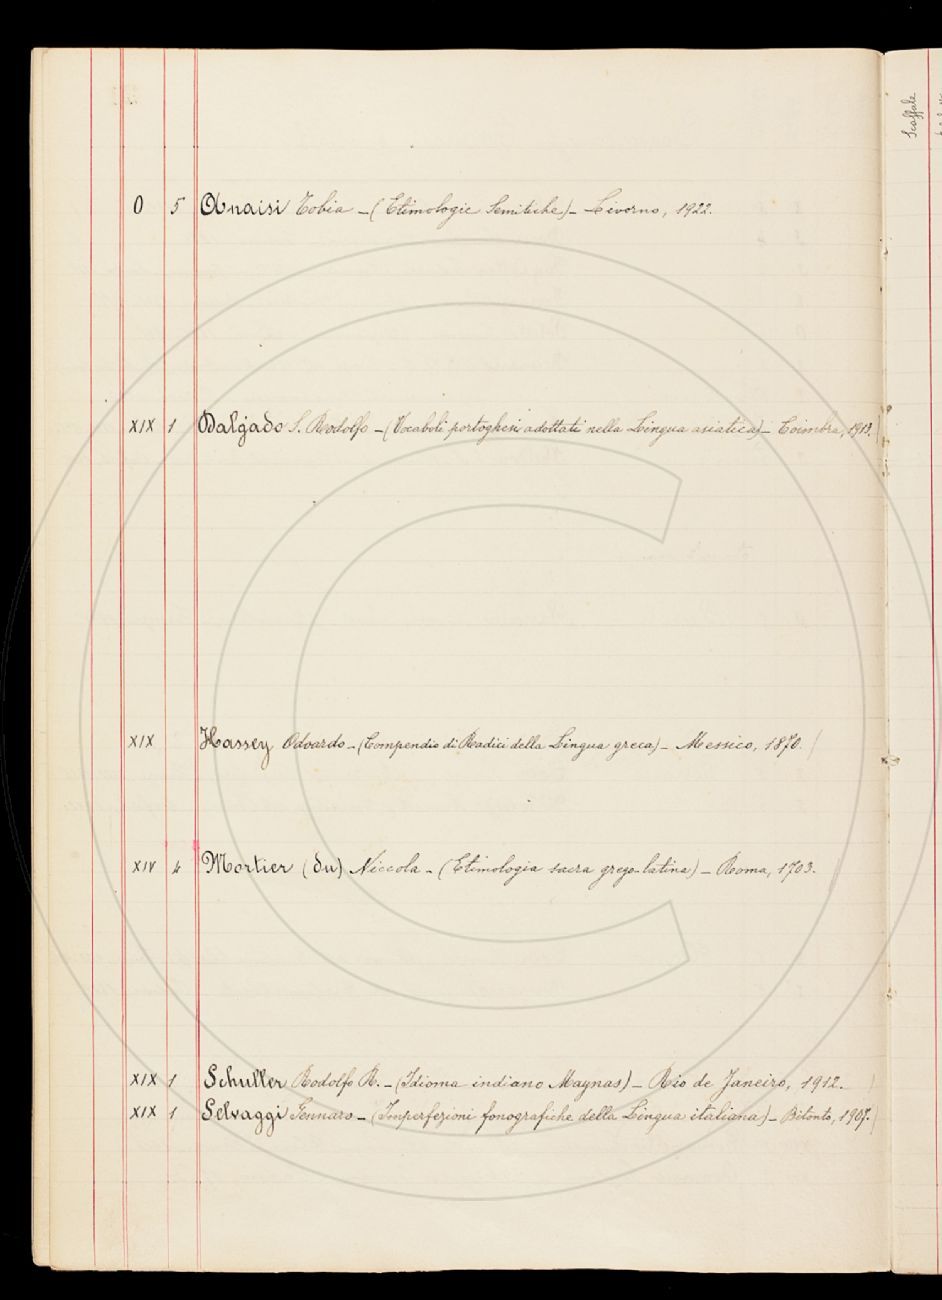 Scaffale
O 5 Anaisi Tobia - (Etimologie Semitiche) - Livorno, 1922.
XIX 1 Dalgado S. Rodolfo - (Vocaboli portoghesi adottati nella Lingua asiatica) - Coimbra, 1913.
XIX Hassey Odoardo - (Compendio di Radici della Lingua greca) - Messico, 1870.
XIV 4 Mortier (du) Niccola - (Etimologia sacra grego-latina) - Roma, 1703.
XIX 1 Schuller Rodolfo R. - (Idioma indiano Maynas) - Rio de Janeiro, 1912.
XIX 1 Selvaggi Gennaro - (Imperfezioni fonografiche della Lingua italiana) - Bitonto, 1907.